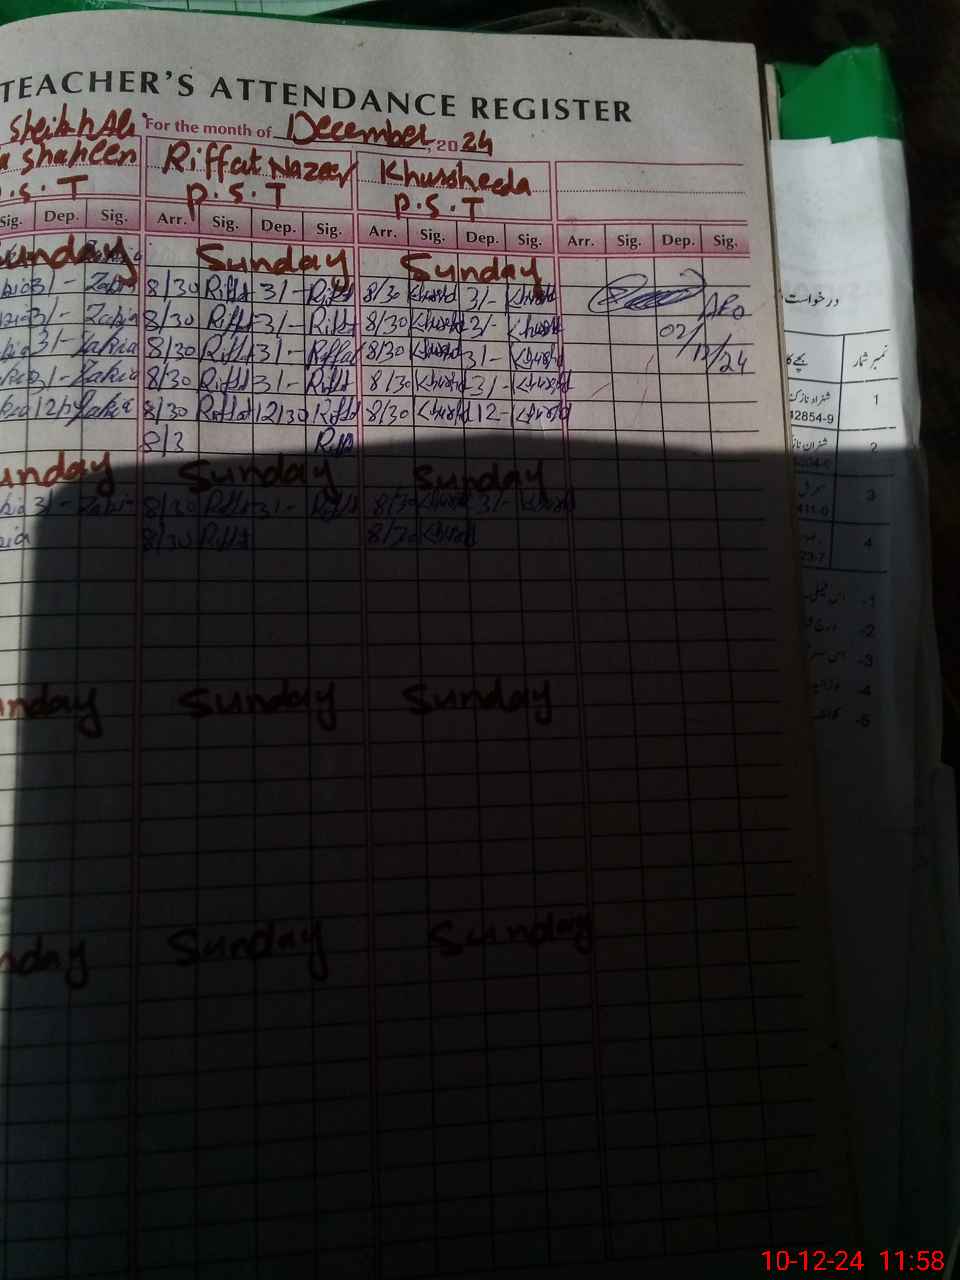 TEACHER'S ATTENDANCE REGISTER
Sheikh Ali For the month of December, 2024
Shaheen Riffat Nazeer Khursheeda
.S.T P.S.T P.S.T
Sig. Dep. Sig. Arr. Sig. Dep. Sig. Arr. Sig. Dep. Sig. Arr. Sig. Dep. Sig.
unday Sunday Sunday
3/- Zakia 8/30 Riffat 3/- Riffat 8/30 Khurshd 3/- Khurshd
3/- Zakia 8/30 Riffat 3/- Riffat 8/30 Khurshd 3/- Khurshd AEO
3/- Zakia 8/30 Riffat 3/- Riffat 8/30 Khurshd 3/- Khurshd 02/12/24
3/- Zakia 8/30 Riffat 3/- Riffat 8/30 Khurshd 3/- Khurshd
12 Zakia 8/30 Riffat 12/30 Riffat 8/30 Khurshd 12- Khurshd
8/3 Riff
unday Sunday Sunday
3/- Zakia 8/30 Riffat 3/- Riffat 8/30 Khurshd 3/- Khurshd
8/30 Riffat 8/30 Khurshd
nday Sunday Sunday
nday Sunday Sunday
درخواست
نمبر شمار
1
12854-9
2
3
411-0
4
23-7
-1
-2
-3
-4
-5
10-12-24 11:58